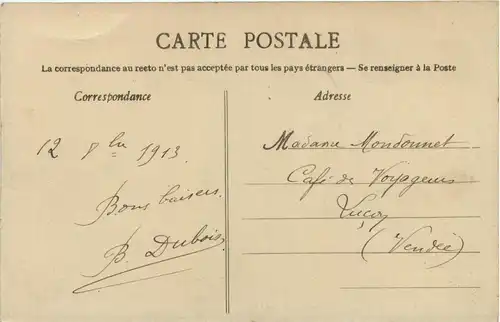 CARTE POSTALE
La correspondance au recto n'est pas acceptée par tous les pays étrangers — Se renseigner à la Poste
Correspondance
12 8bre 1913.
Bons baisers.
B. Dubois
Adresse
Madame Mondonnet
Café des Voyageurs
Luçon
(Vendée)